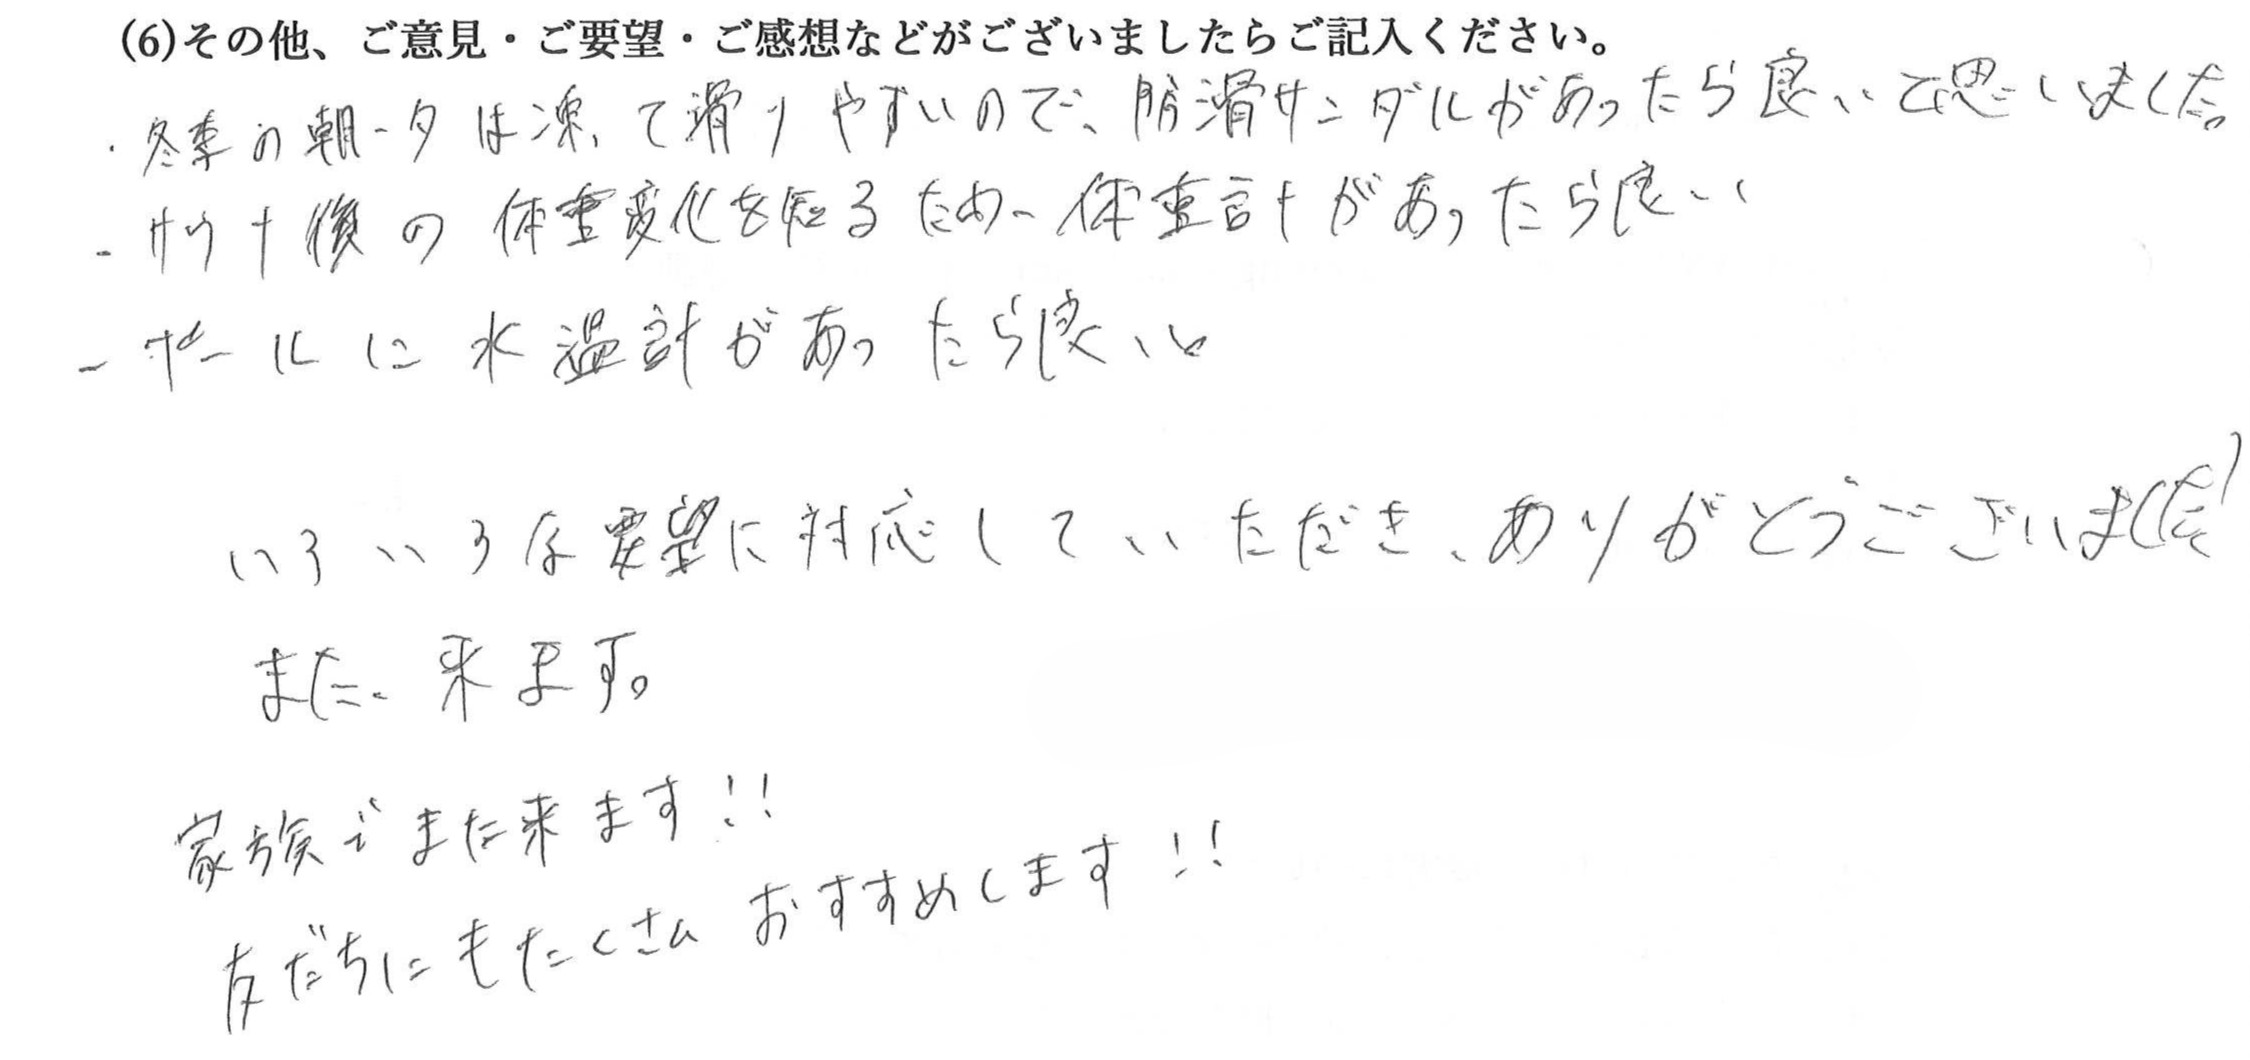 (6)その他、ご意見・ご要望・ご感想などがございましたらご記入ください。
・冬季の朝・夕は凍って滑りやすいので、防滑サンダルがあったら良いと思いました。
・サウナ後の体重変化を知るため、体重計があったら良い
・プールに水温計があったら良い
いろいろな要望に対応していただき、ありがとうございました!
また、来ます。
家族でまた来ます!!
友だちにもたくさん おすすめします!!